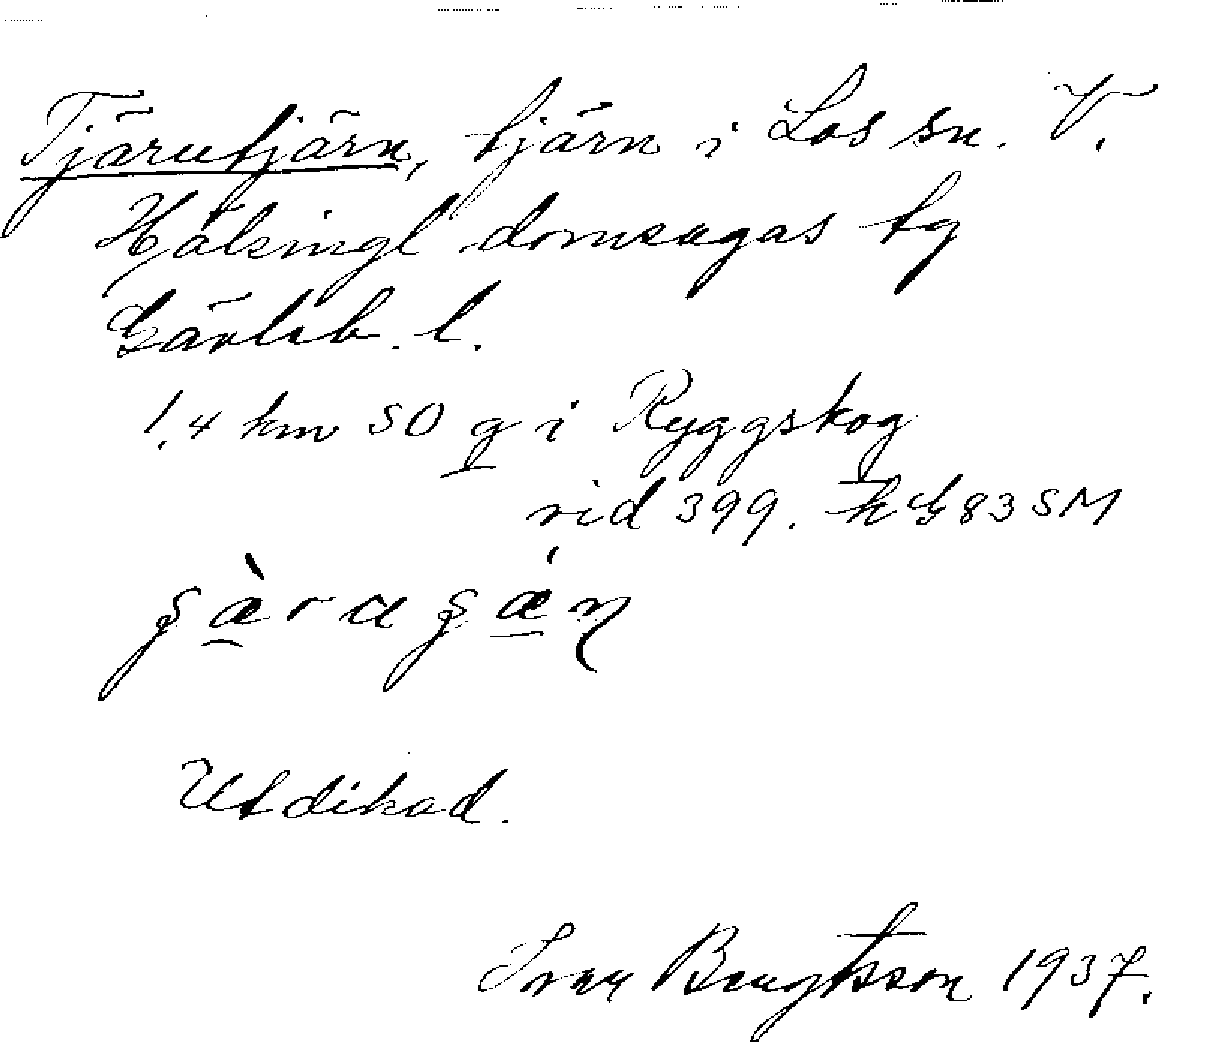 Tjärutjärn, tjärn i Los sn. V.
Hälsingl domsagas tg
Gävleb. l.
1,4 km SO g i Ryggskog
vid 399. kG 83 SM
Utdikad.
Ivan Bengtsson 1937.